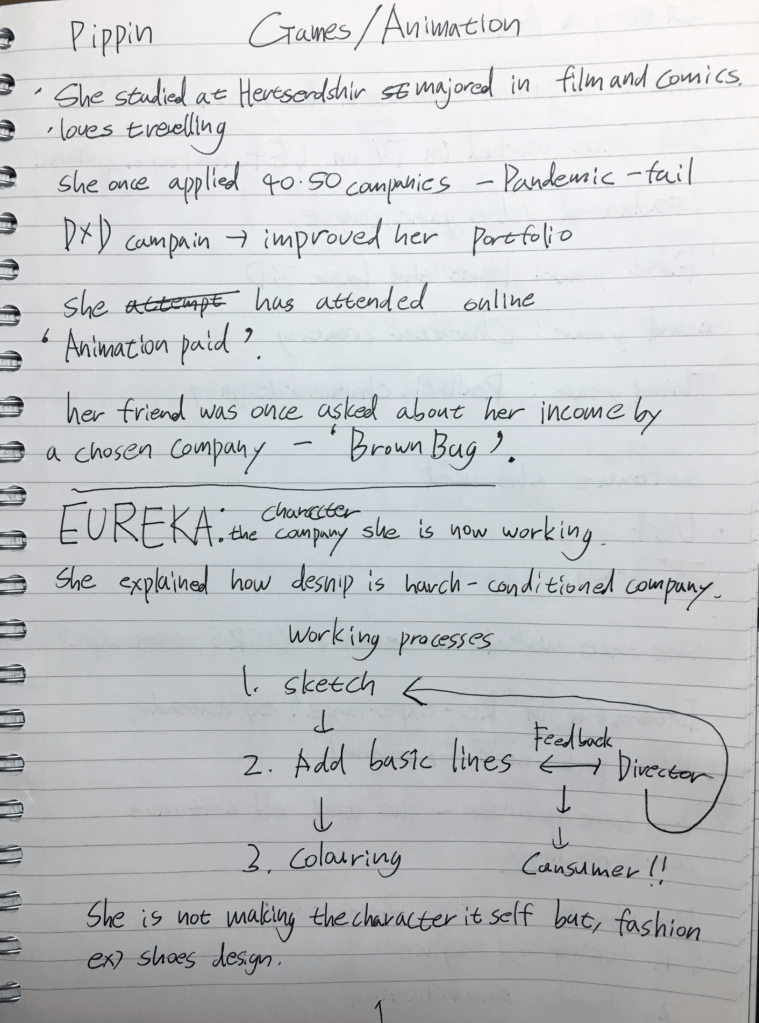 Pippin Games/Animation
· She studied at Hertserdshir st majored in film and comics.
· loves trevelling
she once applied 40.50 companies - Pandemic - fail
D×D campain → improved her portfolio
she attempt has attended online
‘Animation paid’.
her friend was once asked about her income by
a chosen company - ‘Brown Bug’.
character
EUREKA: the company she is now working.
She explained how desnip is harch-conditioned company.
Working processes
1. sketch ←
↓
Feedback
2. Add basic lines ↔ Director
↓ ↓
↓
3. Colouring Cansumer!!
She is not making the character it self but, fashion
ex) shoes design.
1